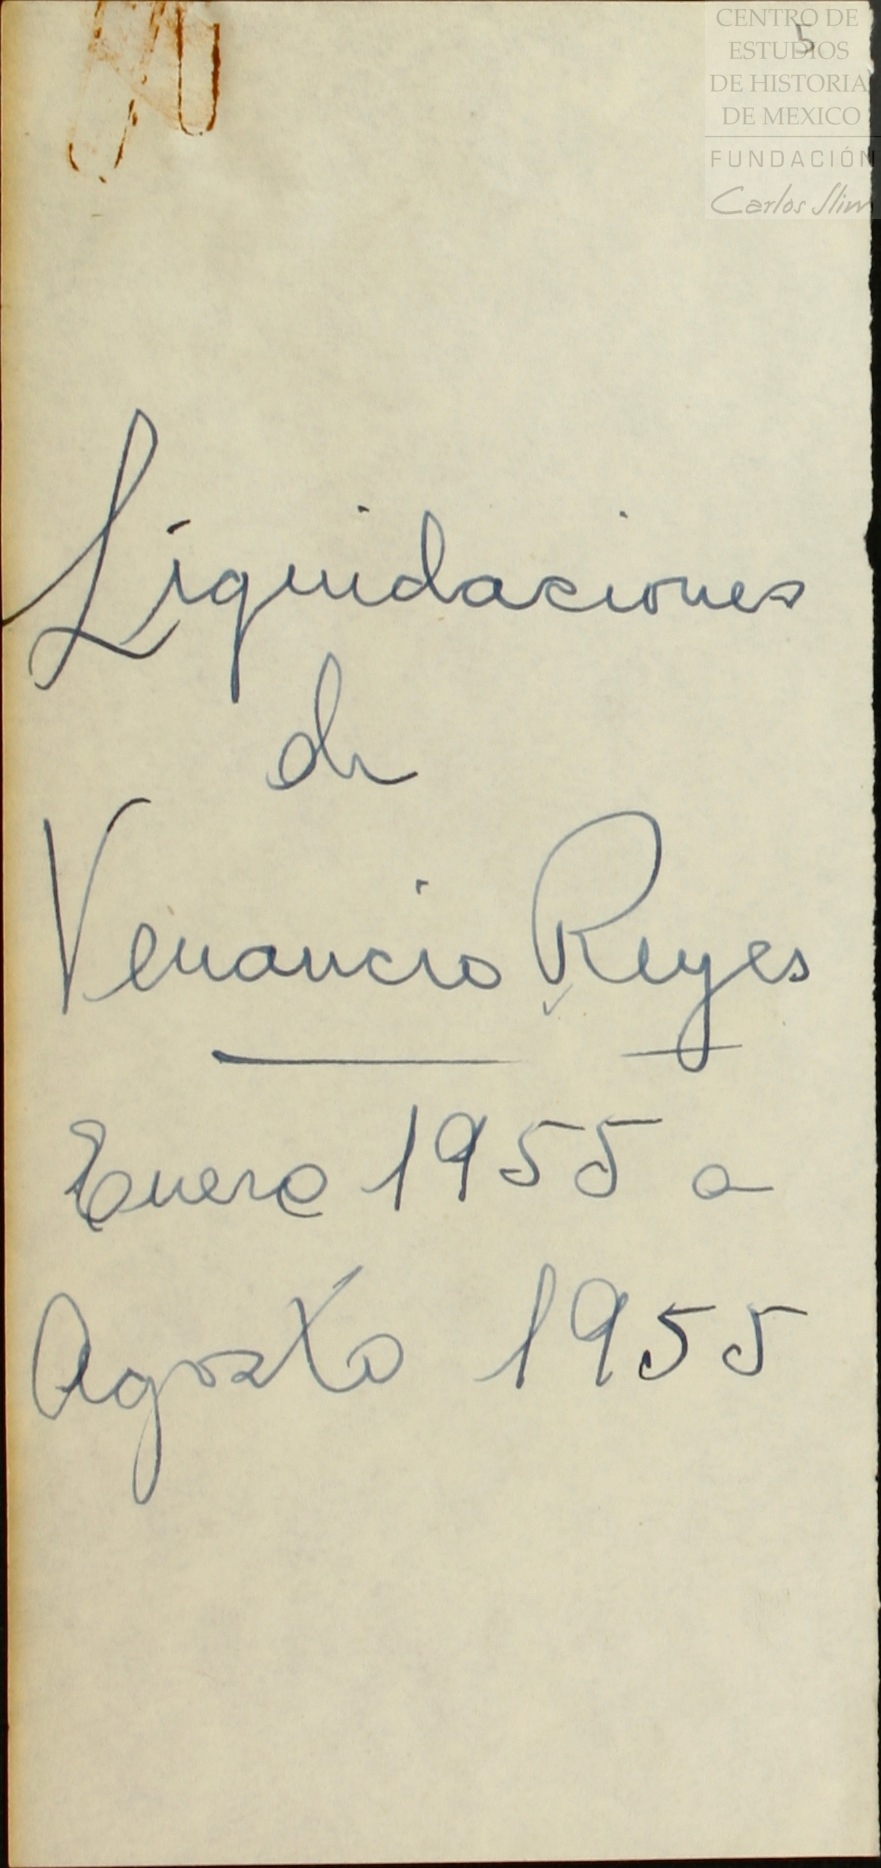 CENTRO DE
ESTUDIOS
DE HISTORIA
DE MEXICO
FUNDACIÓN
Carlos Slim
5
Liquidaciones
de
Venancio Reyes
Enero 1955 a
Agosto 1955